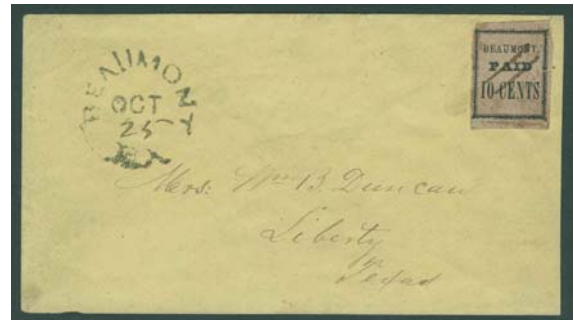 BEAUMONT
OCT
25
BEAUMONT.
PAID
10 CENTS
Mrs: Wm B. Duncan
Liberty
Texas